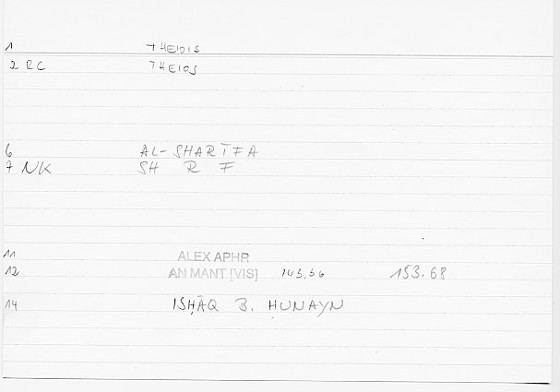 1 THEIOIS
2 RC THEIOS
6 AL-SHARĪFA
7 NK SH R F
11 ALEX APHR
12 AN MANT [VIS] 153.68
14 ISḤĀQ B. ḤUNAYN